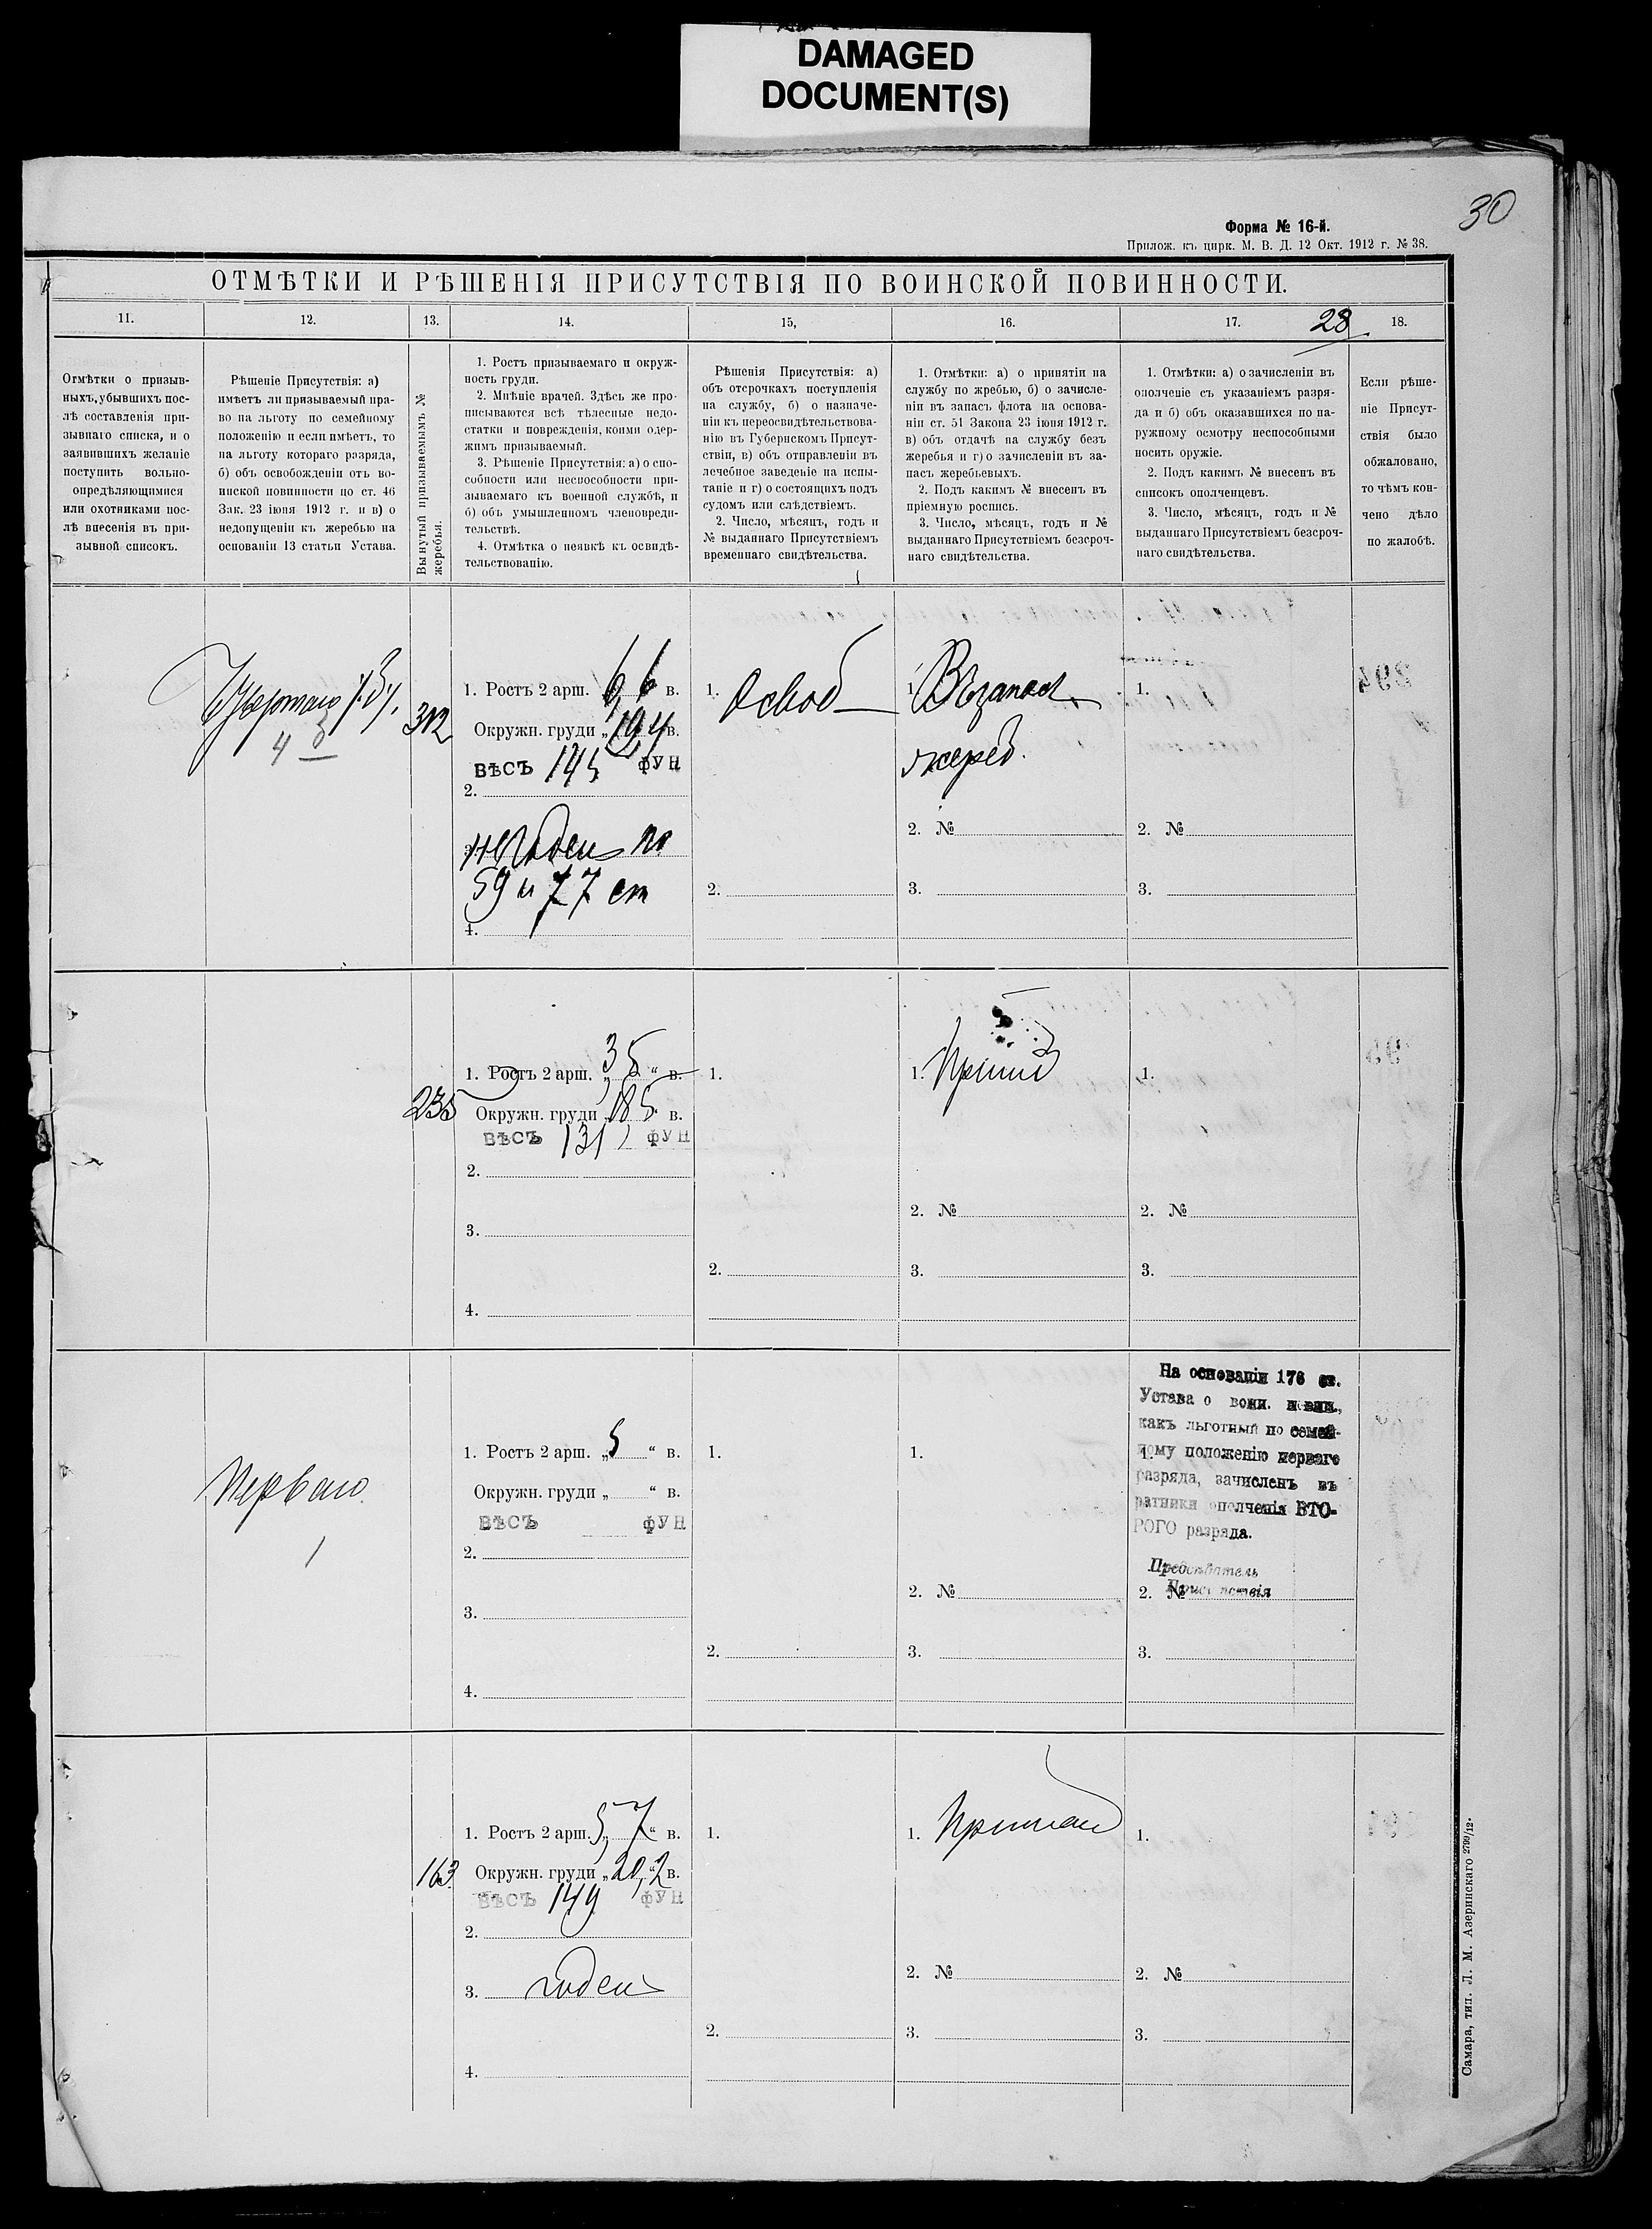 DAMAGED
DOCUMENT(S)
30
Форма № 16-й.
Прилож. къ цирк. М. В. Д. 12 Окт. 1912 г. № 38.
ОТМѢТКИ И РѢШЕНІЯ ПРИСУТСТВІЯ ПО ВОИНСКОЙ ПОВИННОСТИ.
11.
12.
13.
14.
15,
16.
17.
28
18.
Отмѣтки о призыв-
ныхъ, убывшихъ пос-
лѣ составленія при-
зывнаго списка, и о
заявившихъ желаніе
поступить вольно-
опредѣляющимися
или охотниками пос-
лѣ внесенія въ при-
зывной списокъ.
Рѣшеніе Присутствія: а)
имѣетъ ли призываемый пра-
во на льготу по семейному
положенію и если имѣетъ, то
на льготу котораго разряда,
б) объ освобожденіи отъ во-
инской повинности по ст. 46
Зак. 23 іюня 1912 г. и в) о
недопущеніи къ жеребью на
основаніи 13 статьи Устава.
Вынутый призываемымъ №
жеребья.
1. Ростъ призываемаго и окруж-
ность груди.
2. Мнѣніе врачей. Здѣсь же про-
писываются всѣ тѣлесные недо-
статки и поврежденія, коими одер-
жимъ призываемый.
3. Рѣшеніе Присутствія: а) о спо-
собности или неспособности при-
зываемаго къ военной службѣ, и
б) объ умышленномъ членовреди-
тельствѣ.
4. Отмѣтка о неявкѣ къ освидѣ-
тельствованію.
Рѣшенія Присутствія: а)
объ отсрочкахъ поступленія
на службу, б) о назначе-
ніи къ переосвидѣтельствова-
нію въ Губернскомъ Присут-
ствіи, в) объ отправленіи въ
лечебное заведеніе на испы-
таніе и г) о состоящихъ подъ
судомъ или слѣдствіемъ.
2. Число, мѣсяцъ, годъ и
№ выданнаго Присутствіемъ
временнаго свидѣтельства.
1. Отмѣтки: а) о принятіи на
службу по жребью, б) о зачисле-
ніи въ запасъ флота на основа-
ніи ст. 51 Закона 23 іюня 1912 г.
в) объ отдачѣ на службу безъ
жеребья и г) о зачисленіи въ за-
пасъ жеребьевыхъ.
2. Подъ какимъ № внесенъ въ
пріемную роспись.
3. Число, мѣсяцъ, годъ и №
выданнаго Присутствіемъ безсроч-
наго свидѣтельства.
1. Отмѣтки: а) о зачисленіи въ
ополченіе съ указаніемъ разря-
да и б) объ оказавшихся по на-
ружному осмотру неспособными
носить оружіе.
2. Подъ какимъ № внесенъ въ
списокъ ополченцевъ.
3. Число, мѣсяцъ, годъ и №
выданнаго Присутствіемъ безсроч-
наго свидѣтельства.
Если рѣше-
ніе Присут-
ствія было
обжаловано,
то чѣмъ кон-
чено дѣло
по жалобѣ.
4
312
1. Ростъ 2 арш. 6,6 в.
Окружн. груди „19,4 в.
ВѢСЪ 145 ФУН
2.
3. Негоденъ по
59 и 77 ст
4.
1. Освоб
2.
1. Въ запасъ
жереб.
2. №
3.
1.
2. №
3.
235
1. Ростъ 2 арш. „35“ в.
Окружн. груди „185“ в.
ВѢСЪ 131 ФУН
2.
3.
4.
1.
2.
1. Принят
2. №
3.
1.
2. №
3.
Перваго
1
1. Ростъ 2 арш. „5 “ в.
Окружн. груди „ “ в.
ВѢСЪ ФУН
2.
3.
4.
1.
2.
1.
2. №
3.
На основаніи 176 ст.
Устава о воин. повин.,
какъ льготный по семей-
ному положенію перваго
1.
разряда, зачисленъ въ
ратники ополченія ВТО-
РОГО разряда.
Предсѣдатель
Присутствія
2. №
3.
163
1. Ростъ 2 арш. 5,7“ в.
Окружн. груди „20,2“ в.
ВѢСЪ 149 ФУН
2.
3. годенъ
4.
1.
2.
1. Принят
2. №
3.
1.
2. №
3.
Самара, тип. Л. М. Азеринскаго 2799/12.